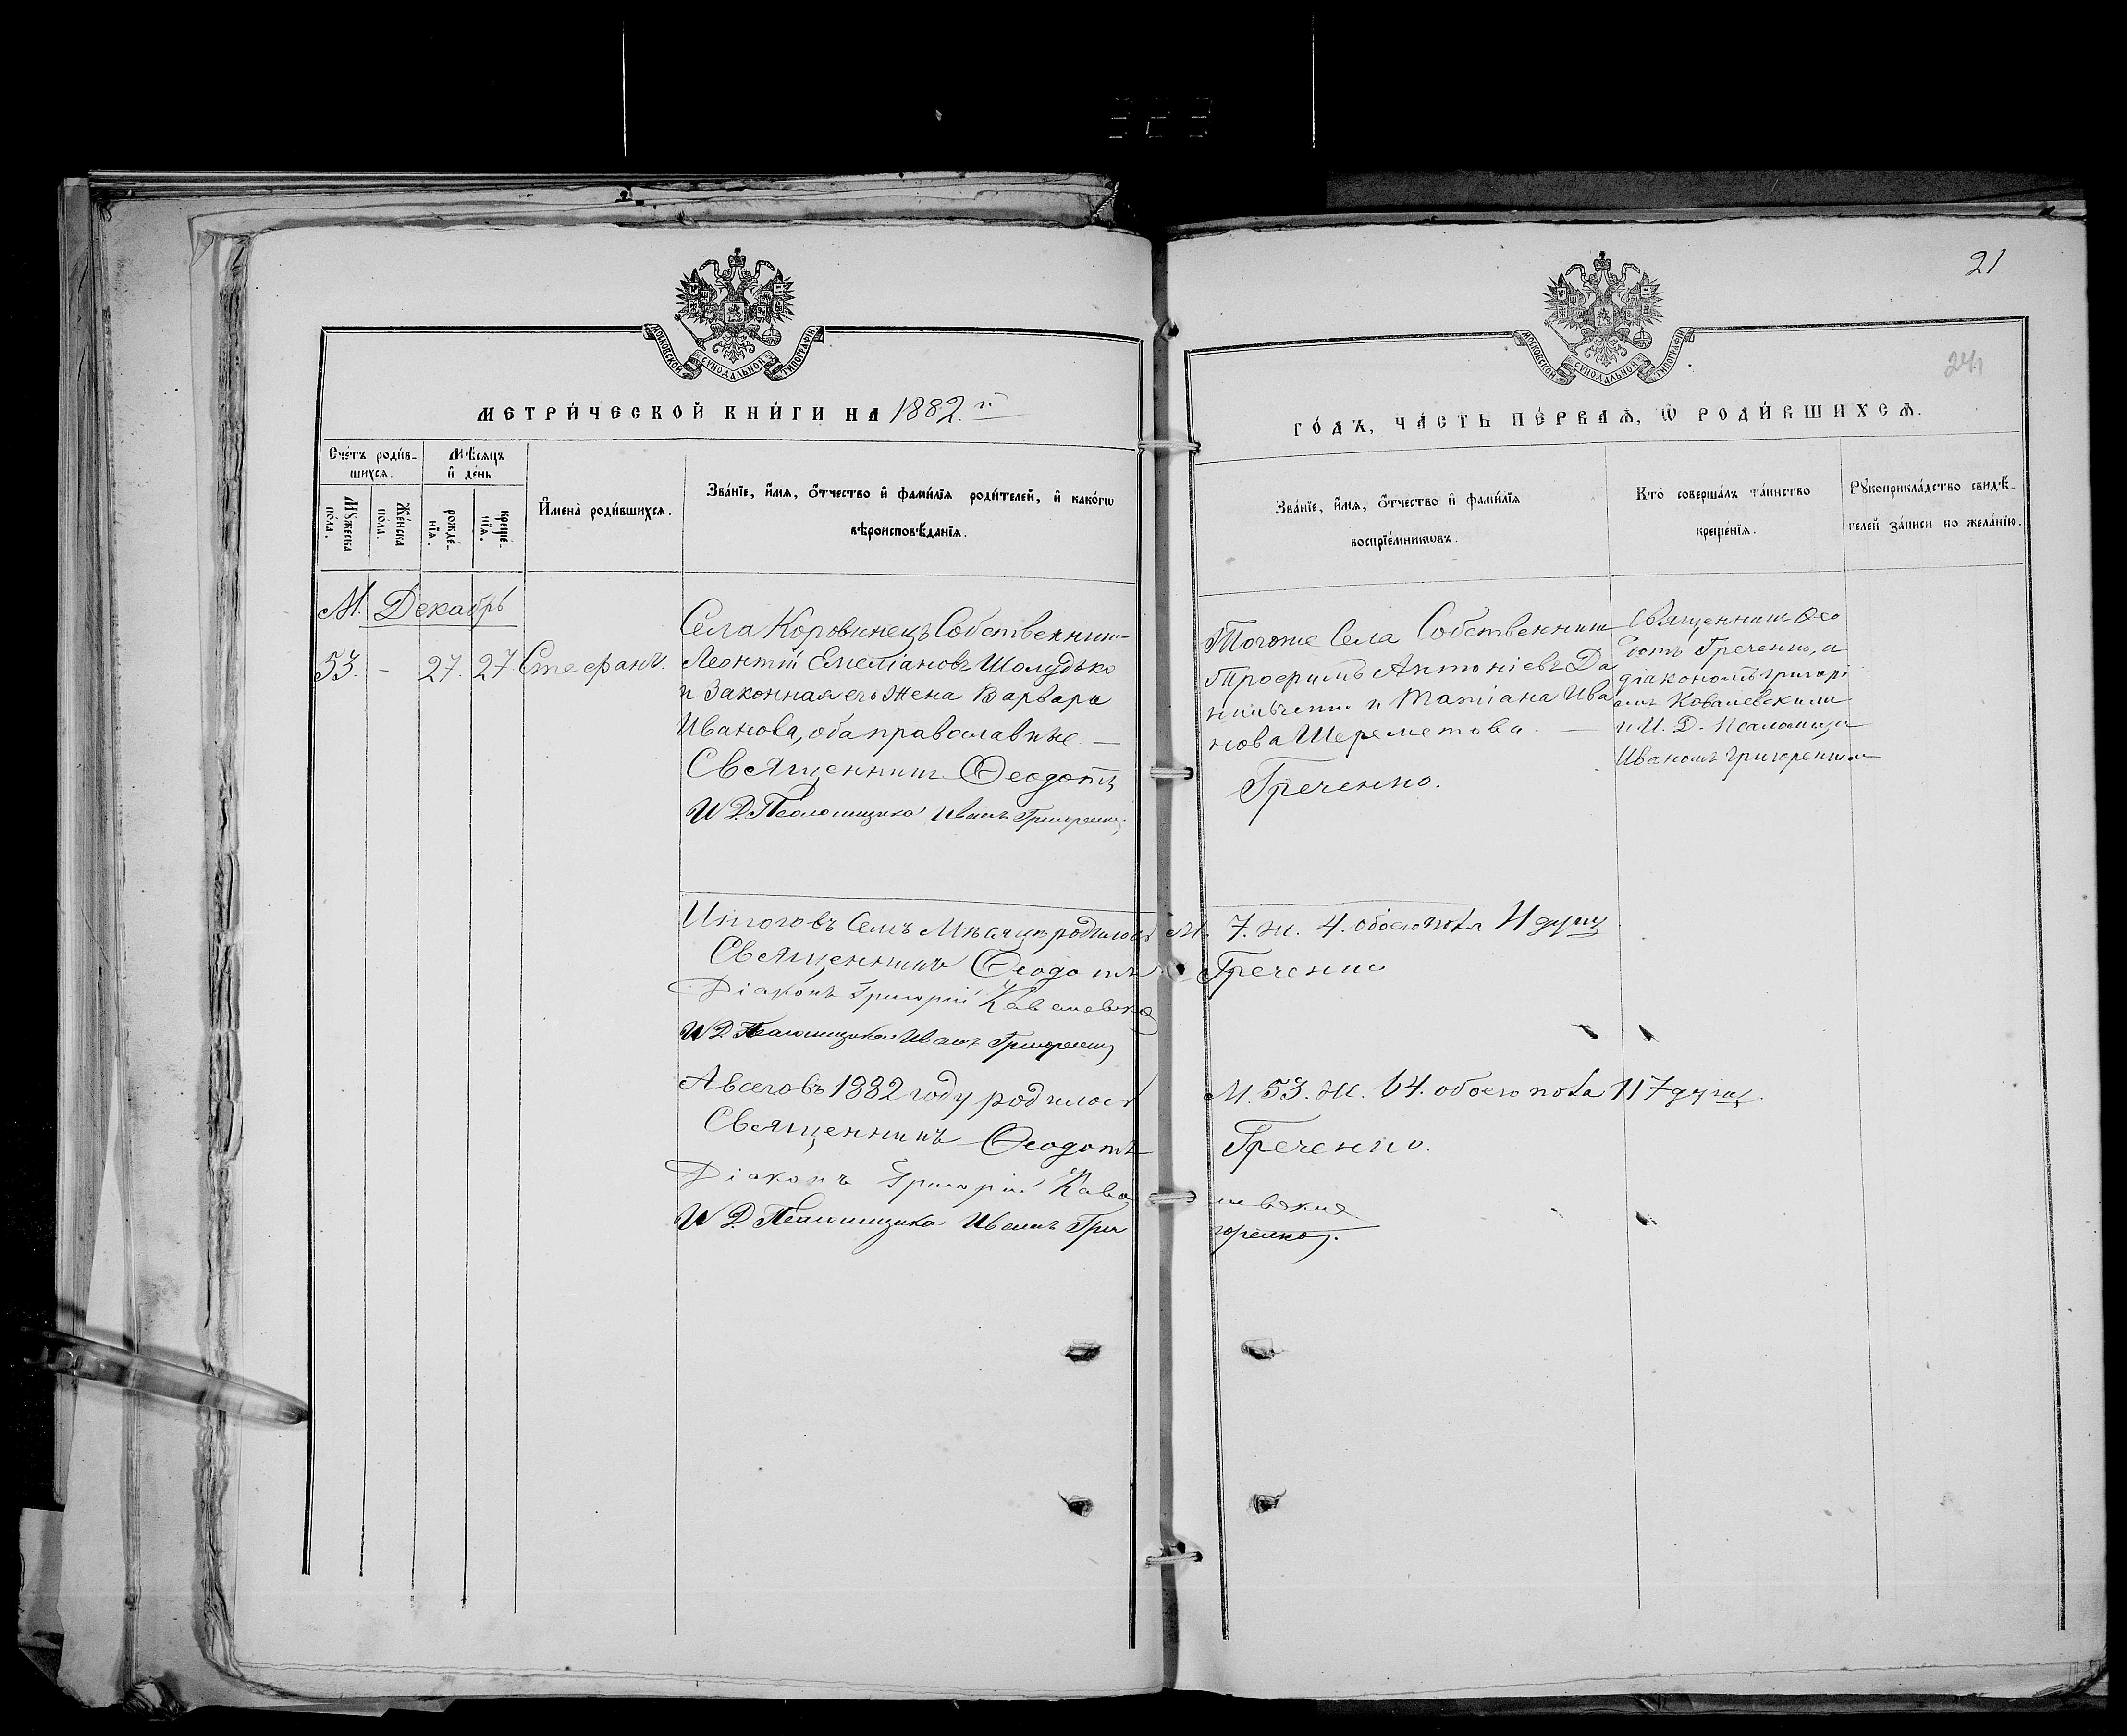 21
24
МОСКОВСКОЙ СУНОДАЛЬНОЙ ТИПОГРАФІИ
МОСКОВСКОЙ СУНОДАЛЬНОЙ ТИПОГРАФІИ
МЕТРИ́ЧЕСКОЙ КНИ́ГИ НА 1882.й
ГО́ДЪ, ЧА́СТЬ ПЕ́РВАѦ, Ѡ РОДИ́ВШИХСѦ.
Сче́тъ роди́в-
шихсѧ.
Мѣ́сѧцъ
и҆ де́нь
Мꙋ́жеска
по́ла.
Же́нска
по́ла.
рожде́-
нїѧ.
креще́-
нїѧ.
И҆мена̀ роди́вшихсѧ.
Зва́нїе, и҆́мѧ, ѻ҆́тчество и҆ фами́лїѧ роди́телей, и҆ како́гѡ
вѣроисповѣ́данїѧ.
Зва́нїе, и҆́мѧ, ѻ҆́тчество и҆ фами́лїѧ
воспрїе́мникѡвъ.
Кто̀ соверша́лъ та́инство
креще́нїѧ.
Рꙋкоприкла́дство свидѣ́-
телей за́писи по жела́нїю.
М. Декабрь
53. - 27. 27. Стефанъ.
Села Коровинецъ Собственник
Леонтій Емеліановъ Шолудько
и Законная его Жена Варвара
Иванова, оба православные. —
Священникъ Ѳеодотъ
И Д. Псаломщика Иванъ Григоренко
Тогоже Села Собственник
Трофимъ Антоніевъ Да
и Татіана Ива
нова Шереметова. —
Греченко.
Священник Ѳео
дотъ Греченко, с
діакономъ Григорі
емъ Ковалевским
и И. Д. Псаломщ
Иваномъ Григоренком
Итого въ Семъ Мѣсяцѣ родилось М. 7. Ж. 4. обоего пола 11 душъ
Священникъ Ѳеодотъ Греченко
Діаконъ Григорій Ковалевскій
И Д. Псаломщика Иванъ Григоренко
А всего въ 1882 году родилось М. 53. Ж. 64. обоего пола 117 душъ.
Священникъ Ѳеодотъ Греченко.
Діаконъ Григорій Кова левскій
И Д. Псаломщика Иванъ Гри горенко.